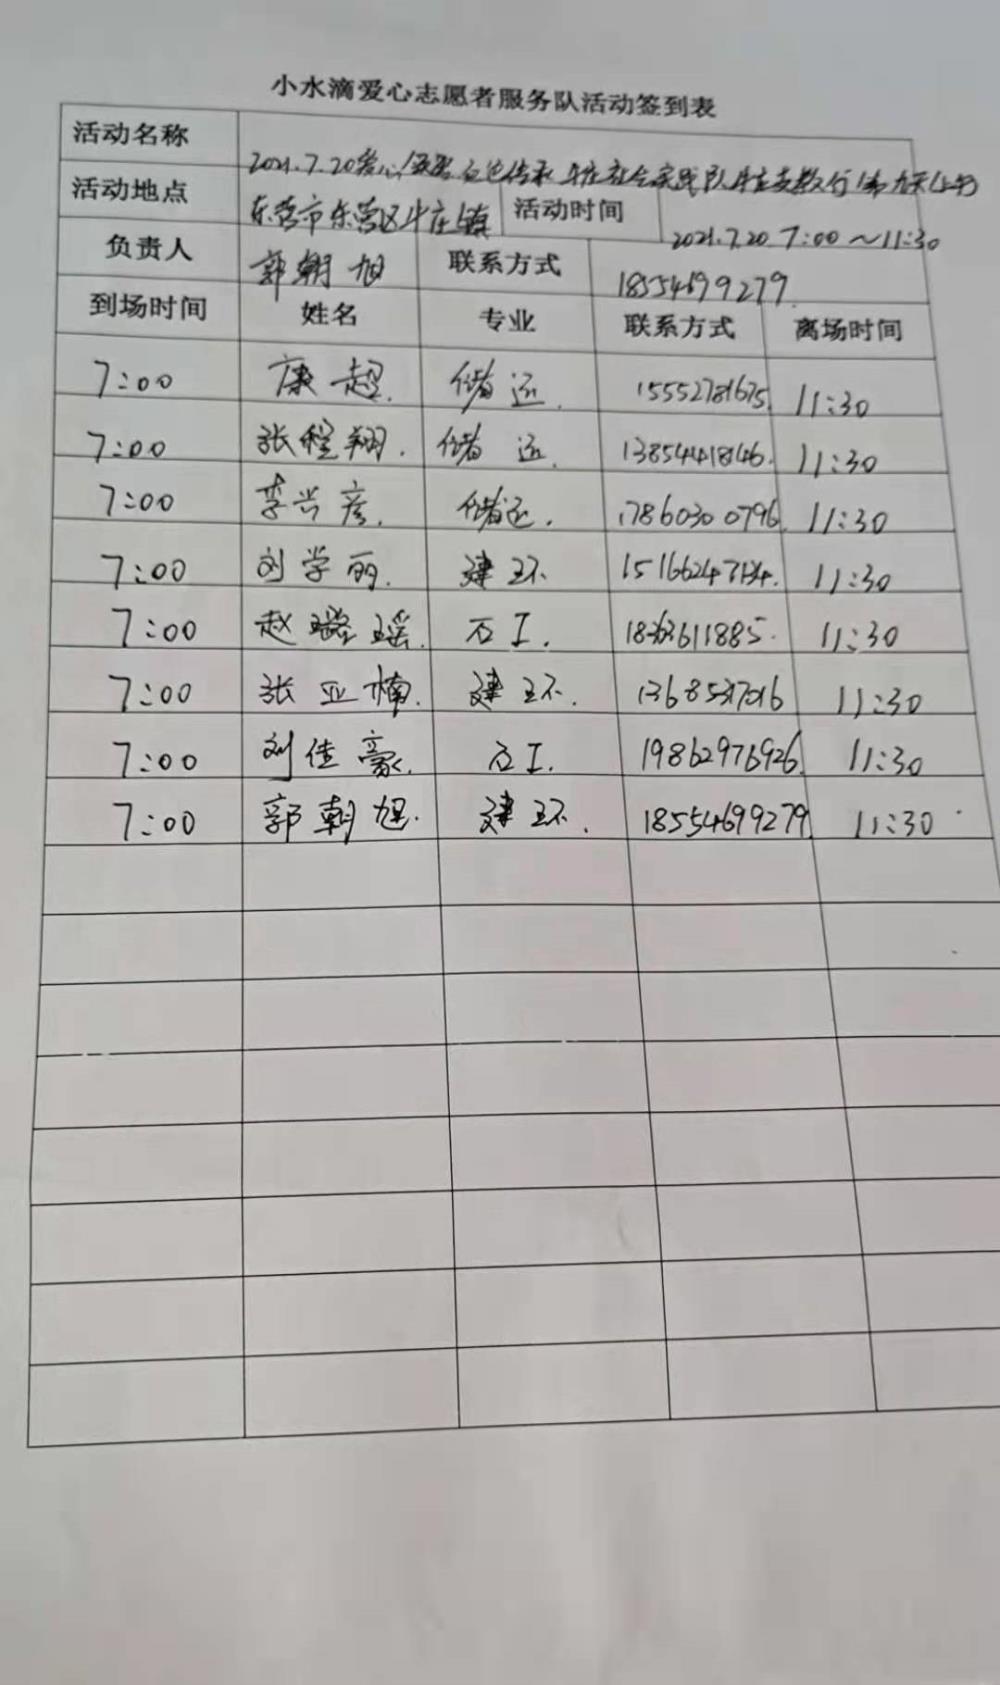 小水滴爱心志愿者服务队活动签到表
活动名称 2021.7.20爱心 传承 牛庄社会实践队牛庄支教行 第九天(上午)
活动地点 东营市东营区牛庄镇 活动时间 2021.7.20 7:00～11:30
负责人 郭朝旭 联系方式 18554699279
到场时间 姓名 专业 联系方式 离场时间
7:00 康超. 储运. 15552781675 11:30
7:00 张程翔. 储运. 13854418146. 11:30
7:00 李兴彦. 储运. 17860300796 11:30
7:00 刘学丽. 建环 11:30
7:00 赵璐瑶. 石工. 11:30
7:00 张亚楠. 建环. 11:30
7:00 刘佳豪. 石工. 19862976926. 11:30
7:00 郭朝旭. 建环. 18554699279 11:30